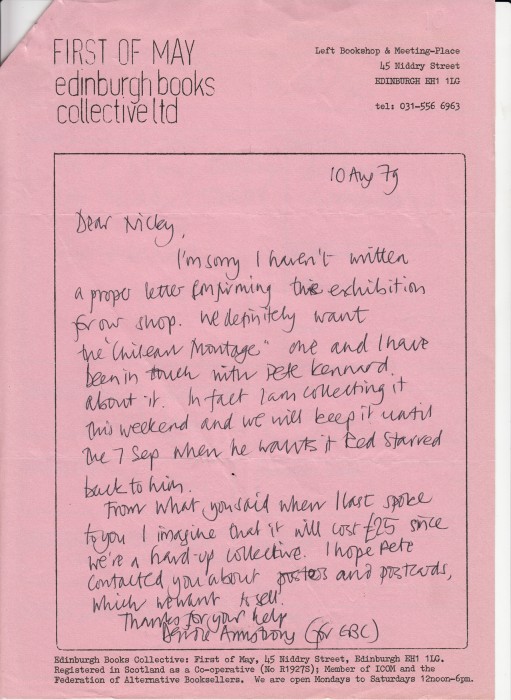 FIRST OF MAY
edinburgh books
collective ltd
Left Bookshop & Meeting-Place
45 Niddry Street
EDINBURGH EH1 1LG
tel: 031-556 6963
10 Aug 79
Dear Nicky,
I'm sorry I haven't written
a proper letter confirming the exhibition
for our shop. We definitely want
the "Chilean Montage" one and I have
been in touch with Pete Kennard
about it. In fact I am collecting it
this weekend and we will keep it until
the 7 Sep when he wants it Red Starred
back to him.
From what you said when I last spoke
to you I imagine that it will cost £25 since
we're a hard-up collective. I hope Pete
contacted you about posters and postcards,
which we want to sell.
Thanks for your help
Armstrong (for EBC)
Edinburgh Books Collective: First of May, 45 Niddry Street, Edinburgh EH1 1LG.
Registered in Scotland as a Co-operative (No R1927S); Member of ICOM and the
Federation of Alternative Booksellers. We are open Mondays to Saturdays 12noon-6pm.